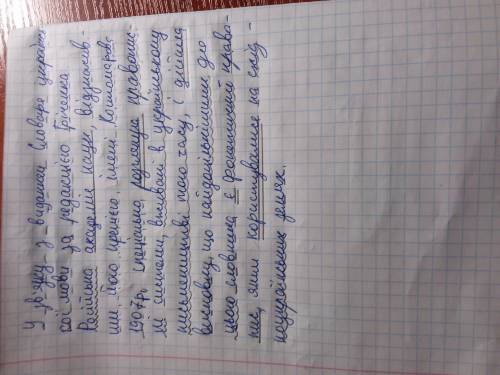 У зв'язку з виданням Словаря україн-
ської мови за редакцією Грінченка
Російська академія наук, відзначив-
ши його премією імені Костомарова
1904р, спеціально розглянула правопис-
ні системи, вживані в українському
письменстві того часу, і дійшла
висновку, що найдоцільнішим для
цього словника є фонетичний право-
пис, яким користувалися на схід -
ноукраїнських землях.